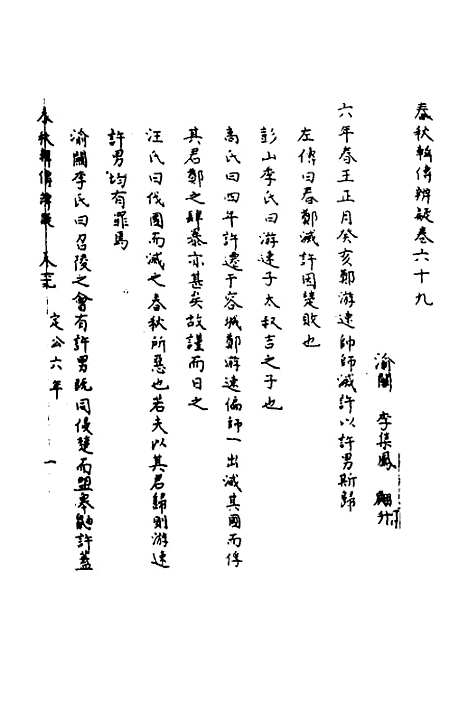 春秋輯傳辨疑卷六十九
渝關 李集鳳 翽升
六年春王正月癸亥鄭游速帥師滅許以許男斯歸
左傳曰春鄭滅許因楚敗也
彭山李氏曰游速子太叔吉之子也
高氏曰四年許遷于容城鄭游速偏師一出滅其國而俘
其君鄭之肆暴亦甚矣故謹而日之
汪氏曰伐國而滅之春秋所惡也若夫以其君歸則游速
許男均有罪焉
渝關李氏曰召陵之會有許男既同侵楚而盟皋鼬許蓋
春秋輯傳辨疑 卷六九 定公六年 一